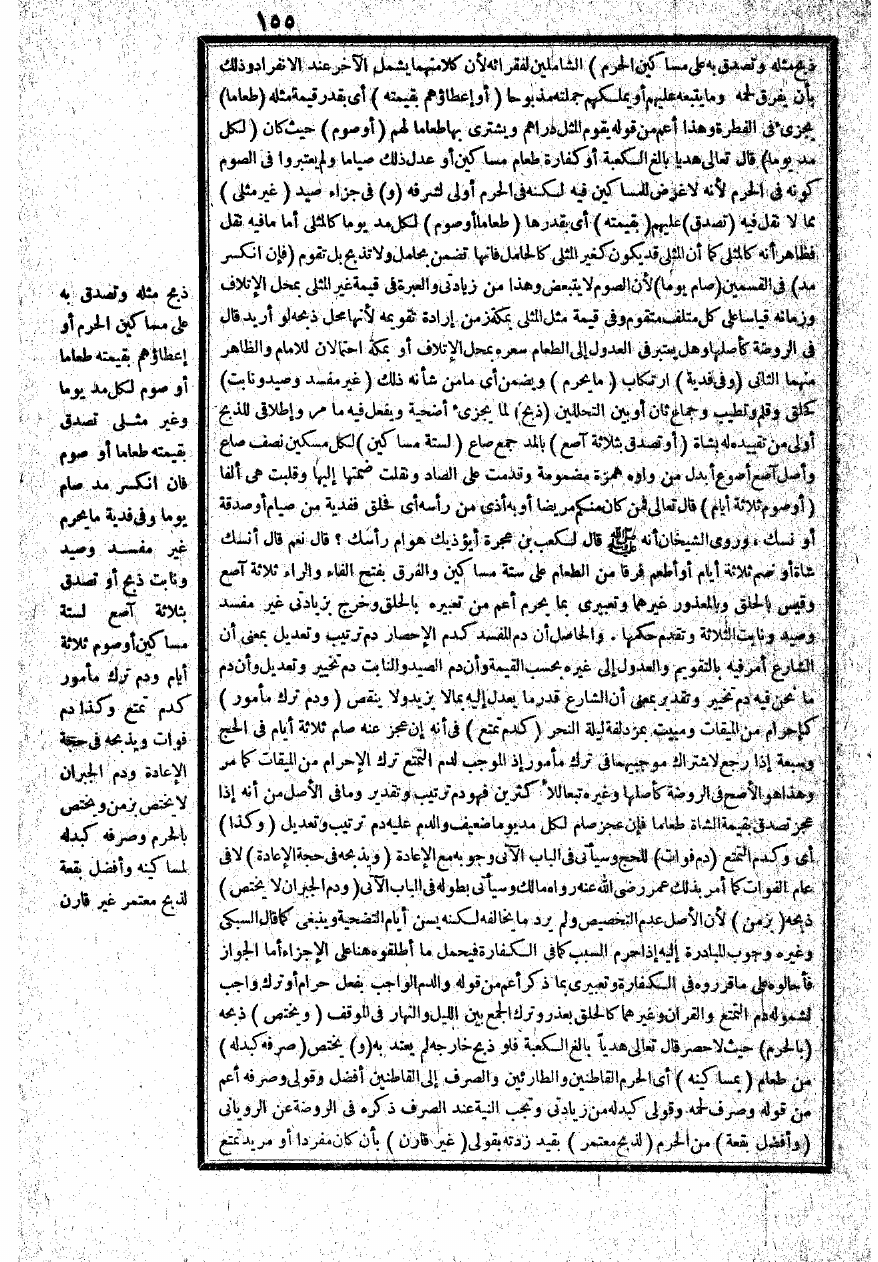 ١٥٥
ذبح مثله وتصدق به على مساكين الحرم ) الشاملين لفقرائه لأن كلا منهما يشمل الآخر عند الانفراد وذلك
بأن يفرق لحمه وما يتبعه عليهم أو يملكهم جملته مذبوحا ( أو إعطاؤهم بقيمته ) أى بقدر قيمة مثله (طعاما)
يجزىء فى الفطرة وهذا أعم من قوله يقوم المثل دراهم ويشترى بها طعاما لهم ( أو صوم ) حيث كان ( لكل
مد يوما) قال تعالى هديا بالغ الكعبة أو كفارة طعام مساكين أو عدل ذلك صياما ولم يعتبروا فى الصوم
كونه فى الحرم لأنه لا غرض للمساكين فيه لكنه فى الحرم أولى لشرفه (و) فى جزاء صيد ( غير مثلى )
مما لا نقل فيه (تصدق) عليهم( بقيمته ) أى بقدرها ( طعاما أو صوم ) لكل مد يوما كالمثلى أما ما فيه نقل
فظاهر أنه كالمثلى كما أن المثلى قد يكون كغير المثلى كالحامل فانها تضمن بحامل ولا تذبح بل تقوم (فإن انكسر
مد) فى القسمين (صام يوما) لأن الصوم لا يتبعض وهذا من زيادتى والعبرة فى قيمة غير المثلى بمحل الإتلاف
وزمانه قياسا على كل متلف متقوم وفى قيمة مثل المثلى بمكة زمن إرادة تقويمه لأنها محل ذبحه لو أريد قال
فى الروضة كأصلها وهل يعتبر فى العدول إلى الطعام سعره بمحل الإتلاف أو بمكة احتمالان للامام والظاهر
منهما الثانى (وفى فدية ) ارتكاب ( ما يحرم ) ويضمن أى ما من شأنه ذلك ( غير مفسد وصيد ونابت)
كحلق وقلم وتطيب وجماع ثان أو بين التحللين (ذبح) لما يجزىء أضحية ويفعل فيه ما مر وإطلاقى للذبح
أولى من تقييده له بشاة ( أو تصدق بثلاثة آصع ) بالمد جمع صاع ( لستة مساكين ) لكل مسكين نصف صاع
وأصل آصع أصوع أبدل من واوه همزة مضمومة وقدمت على الصاد ونقلت ضمتها إليها وقلبت هى ألفا
( أو صوم ثلاثة أيام ) قال تعالى فمن كان منكم مريضا أو به أذى من رأسه أى فحلق ففدية من صيام أو صدقة
أو نسك ، وروى الشيخان أنه ﷺ قال لكعب بن عجرة أيؤذيك هوام رأسك ؟ قال نعم قال أنسك
شاة أو صم ثلاثة أيام أو أطعم فرقا من الطعام على ستة مساكين والفرق بفتح الفاء والراء ثلاثة آصع
وقيس بالحلق وبالمعذور غيرهما وتعبيرى بما يحرم أعم من تعبيره بالحلق وخرج بزيادتى غير مفسد
وصيد ونابت الثلاثة وتقدم حكمها . والحاصل أن دم المفسد كدم الإحصار دم ترتيب وتعديل بمعنى أن
الشارع أمر فيه بالتقويم والعدول إلى غيره بحسب القيمة وأن دم الصيد والنابت دم تخيير وتعديل وأن دم
ما نحن فيه دم تخيير وتقدير بمعنى أن الشارع قدر ما يعدل إليه بما لا يزيد ولا ينقص ( ودم ترك مأمور )
كإحرام من الميقات ومبيت بمزدلفة ليلة النحر ( كدم تمتع ) فى أنه إن عجز عنه صام ثلاثة أيام فى الحج
وسبعة إذا رجع لاشتراك موجبيهما فى ترك مأمور إذ الموجب لدم التمتع ترك الإحرام من الميقات كما مر
وهذا هو الأصح فى الروضة كأصلها وغيره تبعا للأكثرين فهو دم ترتيب وتقدير وما فى الأصل من أنه إذا
عجز تصدق بقيمة الشاة طعاما فإن عجز صام لكل مد يوما ضعيف والدم عليه دم ترتيب وتعديل ( وكذا )
أى وكدم التمتع (دم فوات) للحج وسيأتى فى الباب الآتى وجوبه مع الإعادة ( ويذبحه فى حجة الإعادة) لا فى
عام الفوات كما أمر بذلك عمر رضى الله عنه رواه مالك وسيأتى بطوله فى الباب الآتى (ودم الجبران لا يختص )
ذبحه( بزمن ) لأن الأصل عدم التخصيص ولم يرد ما يخالفه لكنه يسن أيام التضحية وينبغى كما قال السبكى
وغيره وجوب المبادرة إليه إذا حرم السبب كما فى الكفارة فيحمل ما أطلقوه هنا على الإجزاء أما الجواز
فأحالوه على ما قرروه فى الكفارة وتعبيرى بما ذكر أعم من قوله والدم الواجب بفعل حرام أو ترك واجب
لشموله دم التمتع والقران وغيرهما كالحلق بعذر وترك الجمع بين الليل والنهار فى الموقف ( ويختص ) ذبحه
(بالحرم) حيث لا حصر قال تعالى هديا بالغ الكعبة فلو ذبح خارجه لم يعتد به (و) يختص (صرفه كبدله )
من طعام ( بمساكينه ) أى الحرم القاطنين والطارئين والصرف إلى القاطنين أفضل وقولى وصرفه أعم
من قوله وصرف لحمه وقولى كبدله من زيادتى وتجب النية عند الصرف ذكره فى الروضة عن الرويانى
( وأفضل بقعة ) من الحرم ( لذبح معتمر ) بقيد زدته بقولى ( غير قارن ) بأن كان مفردا أو مريد تمتع
ذبح مثله وتصدق به
على مساكين الحرم أو
إعطاؤهم بقيمته طعاما
أو صوم لكل مد يوما
وغير مثلى تصدق
بقيمته طعاما أو صوم
فان انكسر مد صام
يوما وفى فدية ما يحرم
غير مفسد وصيد
ونابت ذبح أو تصدق
بثلاثة آصع لستة
مساكين أو صوم ثلاثة
أيام ودم ترك مأمور
كدم تمتع وكذا دم
فوات ويذبحه فى حجة
الإعادة ودم الجبران
لا يختص بزمن ويختص
بالحرم وصرفه كبدله
لمساكينه وأفضل بقعة
لذبح معتمر غير قارن